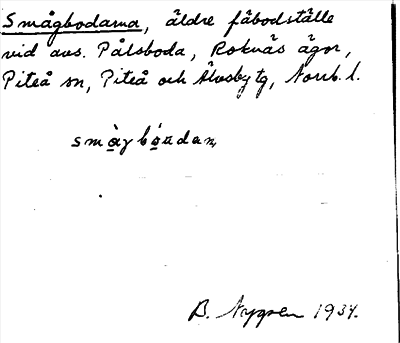 Smågbodarna, äldre fäbodställe
vid avs. Pålsboda, Roknäs ägor,
Piteå sn, Piteå och Älvsby tg, Norrb. l.
småγbóudan,
B. Nygren 1934.